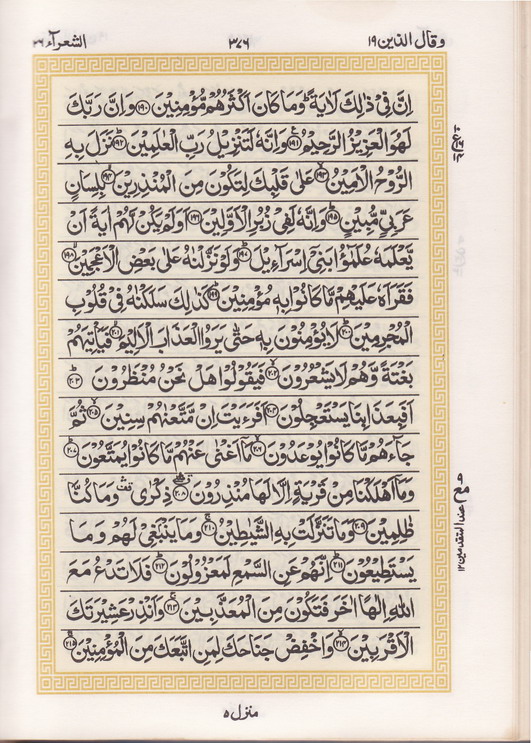 وقال الذين ١٩
٣٧٦
الشعرآء ٢٦
اِنَّ فِىۡ ذٰلِكَ لَاٰيَةً ؕ وَمَا كَانَ اَكۡثَرُهُمۡ مُّؤۡمِنِيۡنَ ﴿١٩٠﴾ وَاِنَّ رَبَّكَ
لَهُوَ الۡعَزِيۡزُ الرَّحِيۡمُ ﴿١٩١﴾ وَاِنَّهٗ لَتَنۡزِيۡلُ رَبِّ الۡعٰلَمِيۡنَ ﴿١٩٢﴾ نَزَلَ بِهِ
الرُّوۡحُ الۡاَمِيۡنُ ﴿١٩٣﴾ عَلٰى قَلۡبِكَ لِتَكُوۡنَ مِنَ الۡمُنۡذِرِيۡنَ ﴿١٩٤﴾ بِلِسَانٍ
عَرَبِىٍّ مُّبِيۡنٍ ﴿١٩٥﴾ وَاِنَّهٗ لَفِىۡ زُبُرِ الۡاَوَّلِيۡنَ ﴿١٩٦﴾ اَوَلَمۡ يَكُنۡ لَّهُمۡ اٰيَةً اَنۡ
يَّعۡلَمَهٗ عُلَمٰٓؤُا بَنِىۡۤ اِسۡرَآءِيۡلَ ﴿١٩٧﴾ وَلَوۡ نَزَّلۡنٰهُ عَلٰى بَعۡضِ الۡاَعۡجَمِيۡنَ ﴿١٩٨﴾
فَقَرَاَهٗ عَلَيۡهِمۡ مَّا كَانُوۡا بِهٖ مُؤۡمِنِيۡنَ ﴿١٩٩﴾ كَذٰلِكَ سَلَكۡنٰهُ فِىۡ قُلُوۡبِ
الۡمُجۡرِمِيۡنَ ﴿٢٠٠﴾ لَا يُؤۡمِنُوۡنَ بِهٖ حَتّٰى يَرَوُا الۡعَذَابَ الۡاَلِيۡمَ ﴿٢٠١﴾ فَيَاۡتِيَهُمۡ
بَغۡتَةً وَّهُمۡ لَا يَشۡعُرُوۡنَ ﴿٢٠٢﴾ فَيَقُوۡلُوۡا هَلۡ نَحۡنُ مُنۡظَرُوۡنَ ﴿٢٠٣﴾
اَفَبِعَذَابِنَا يَسۡتَعۡجِلُوۡنَ ﴿٢٠٤﴾ اَفَرَءَيۡتَ اِنۡ مَّتَّعۡنٰهُمۡ سِنِيۡنَ ﴿٢٠٥﴾ ثُمَّ
جَآءَهُمۡ مَّا كَانُوۡا يُوۡعَدُوۡنَ ﴿٢٠٦﴾ مَاۤ اَغۡنٰى عَنۡهُمۡ مَّا كَانُوۡا يُمَتَّعُوۡنَ ﴿٢٠٧﴾
وَمَاۤ اَهۡلَكۡنَا مِنۡ قَرۡيَةٍ اِلَّا لَهَا مُنۡذِرُوۡنَ ﴿٢٠٨﴾ ذِكۡرٰى وَمَا كُنَّا
ظٰلِمِيۡنَ ﴿٢٠٩﴾ وَمَا تَنَزَّلَتۡ بِهِ الشَّيٰطِيۡنُ ﴿٢١٠﴾ وَمَا يَنۡۢبَغِىۡ لَهُمۡ وَمَا
يَسۡتَطِيۡعُوۡنَ ﴿٢١١﴾ اِنَّهُمۡ عَنِ السَّمۡعِ لَمَعۡزُوۡلُوۡنَ ﴿٢١٢﴾ فَلَا تَدۡعُ مَعَ
اللّٰهِ اِلٰهًا اٰخَرَ فَتَكُوۡنَ مِنَ الۡمُعَذَّبِيۡنَ ﴿٢١٣﴾ وَاَنۡذِرۡ عَشِيۡرَتَكَ
الۡاَقۡرَبِيۡنَ ﴿٢١٤﴾ وَاخۡفِضۡ جَنَاحَكَ لِمَنِ اتَّبَعَكَ مِنَ الۡمُؤۡمِنِيۡنَ ﴿٢١٥﴾
عند المتقدمين ١٢
منزل ٥